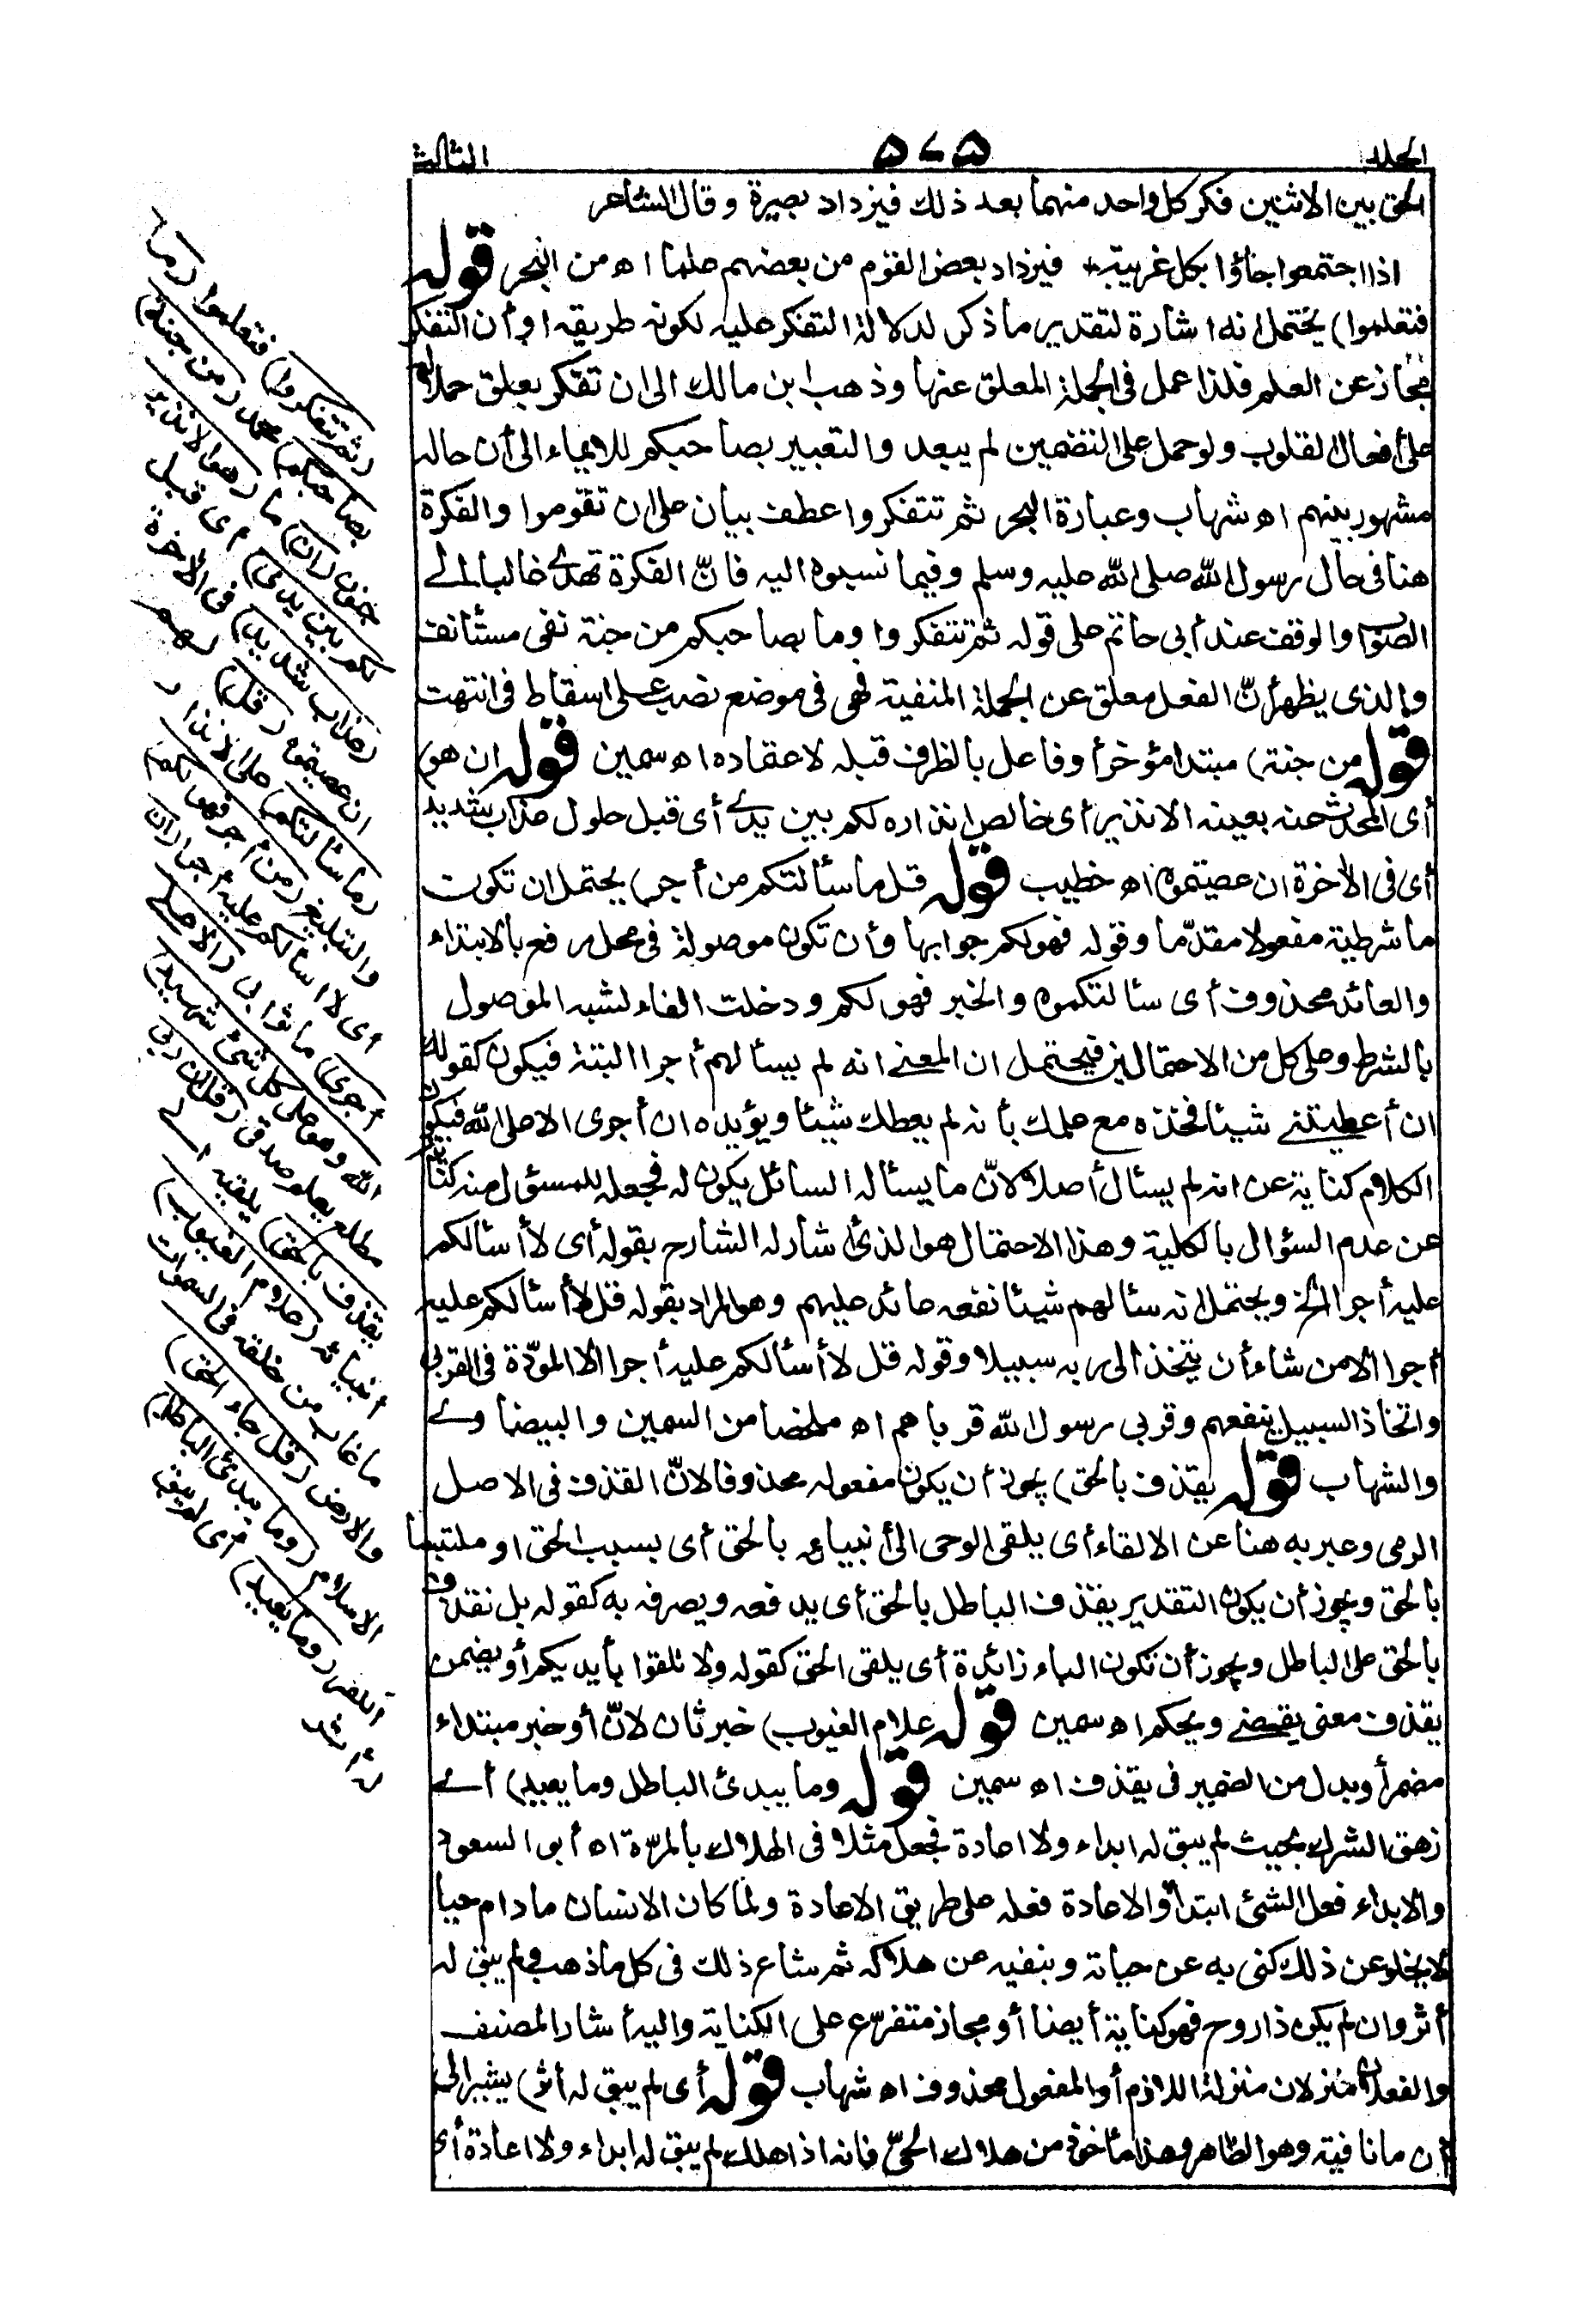 الجلد
٥٧٥
الثالث
الحق بين الاثنين فكر كل واحد منهما بعد ذلك فيزداد بصيرة وقال الشاعر
اذا اجتمعوا جاؤا بكل غريبة فيزداد بعض القوم من بعضهم علما اه من البحر قوله
فتعلموا) يحتمل انه اشارة لتقدير ما ذكر لدلالة التفكر عليه لكونه طريقه او أن التفكر
مجاز عن العلم فلذا عمل فى الجملة المعلق عنها وذهب ابن مالك الى ان تفكر يعلق حملا له
على أفعال القلوب ولو حمل على التضمين لم يبعد والتعبير بصاحبكم للايماء الى أن حاله
مشهور بينهم اه شهاب وعبارة البحر ثم تتفكروا عطف بيان على ان تقوموا والفكرة
هنا فى حال رسول الله صلى الله عليه وسلم وفيما نسبوه اليه فانّ الفكرة تهدى غالبا الى
الصواب والوقف عند أبى حاتم على قوله ثم تتفكروا وما بصاحبكم من جنة نفى مستأنف
والذى يظهر أنّ الفعل معلق عن الجملة المنفية فهى فى موضع نصب على اسقاط فى انتهت
قوله من جنة) مبتدا مؤخر أو فاعل بالظرف قبله لاعتماده اه سمين قوله ان هو)
أى المحدث عنه بعينه الا نذير أى خالص انذاره لكم بين يدى أى قبل حلول عذاب شديد
أى فى الآخرة ان عصيتموه اه خطيب قوله قل ما سألتكم من أجر) يحتمل ان تكون
ما شرطية مفعولا مقدّما وقوله فهو لكم جوابها وأن تكون موصولة فى محل رفع بالابتداء
والعائد محذوف أى سألتكموه والخبر فهو لكم ودخلت الفاء لشبه الموصول
بالشرط وعلى كل من الاحتمالين فيحتمل ان المعنى انه لم يسألهم أجرا البتة فيكون كقولك
ان أعطيتنى شيئا فخذه مع علمك بأنه لم يعطك شيئا ويؤيده ان أجرى الا على الله فيكون
الكلام كناية عن انه لم يسأل أصلا لانّ ما يسأله السائل يكون له فجعله للمسؤل منه كناية
عن عدم السؤال بالكلية وهذا الاحتمال هو الذى أشار له الشارح بقوله أى لا أسألكم
عليه أجرا الخ ويحتمل انه سألهم شيئا نفعه عائد عليهم وهو المراد بقوله قل لا أسألكم عليه
أجرا الا من شاء أن يتخذ الى ربه سبيلا وقوله قل لا أسألكم عليه أجرا الا المودّة فى القربى
واتخاذ السبيل ينفعهم وقربى رسول الله قرباهم اه ملخصا من السمين والبيضاوى
والشهاب قوله يقذف بالحق) يجوز أن يكون مفعوله محذوفا لانّ القذف فى الاصل
الرمى وعبر به هنا عن الالقاء أى يلقى الوحى الى أنبيائه بالحق أى بسبب الحق او ملتبسا
بالحق ويجوز أن يكون التقدير يقذف الباطل بالحق أى يدفعه ويصرفه به كقوله بل نقذف
بالحق على الباطل ويجوز أن تكون الباء زائدة أى يلقى الحق كقوله ولا تلقوا بأيديكم أو يضمن
يقذف معنى يقضى ويحكم اه سمين قوله علام الغيوب) خبر ثان لانّ أو خبر مبتداء
مضمر أو بدل من الضمير فى يقذف اه سمين قوله وما يبدئ الباطل وما يعيد) أى
زهق الشرك بحيث لم يبق له ابداء ولا اعادة فجعل مثلا فى الهلاك بالمرّة اه أبو السعود
والابداء فعل الشئ ابتداء والاعادة فعله على طريق الاعادة ولما كان الانسان ما دام حيا
لا يخلو عن ذلك كنى به عن حياته وبنفيه عن هلاكه ثم شاع ذلك فى كل ما ذهب ولم يبق له
أثر وان لم يكن ذا روح فهو كناية أيضا أو مجاز متفرّع على الكناية واليه أشار المصنف
والفعلان منزلان منزلة اللازم أو المفعول محذوف اه شهاب قوله أى لم يبق له أثر) يشير الى
أن ما نافية وهو الظاهر وهذا مأخوذ من هلاك الحىّ فانه اذا هلك لم يبق له ابداء ولا اعادة أى
(ثم تتفكروا) فتعلموا (ما
بصاحبكم) محمد (من جنة)
جنون (ان) ما (هو الا نذير
لكم بين يدى) أى قبل
(عذاب شديد) فى الآخرة
ان عصيتموه (قل) لهم
(ما سألتكم) على الانذار
والتبليغ (من أجر فهو لكم)
أى لا أسألكم عليه أجرا (ان
أجرى) ما ثوابى (الا على
الله وهو على كل شئ شهيد)
مطلع يعلم صدقى (قل ان ربى
يقذف بالحق) يلقيه الى
أنبيائه (علام الغيوب)
ما غاب من خلقه فى السموات
والارض (قل جاء الحق)
الاسلام (وما يبدئ الباطل)
الكفر (وما يعيد) أى لم يبق
له أثر